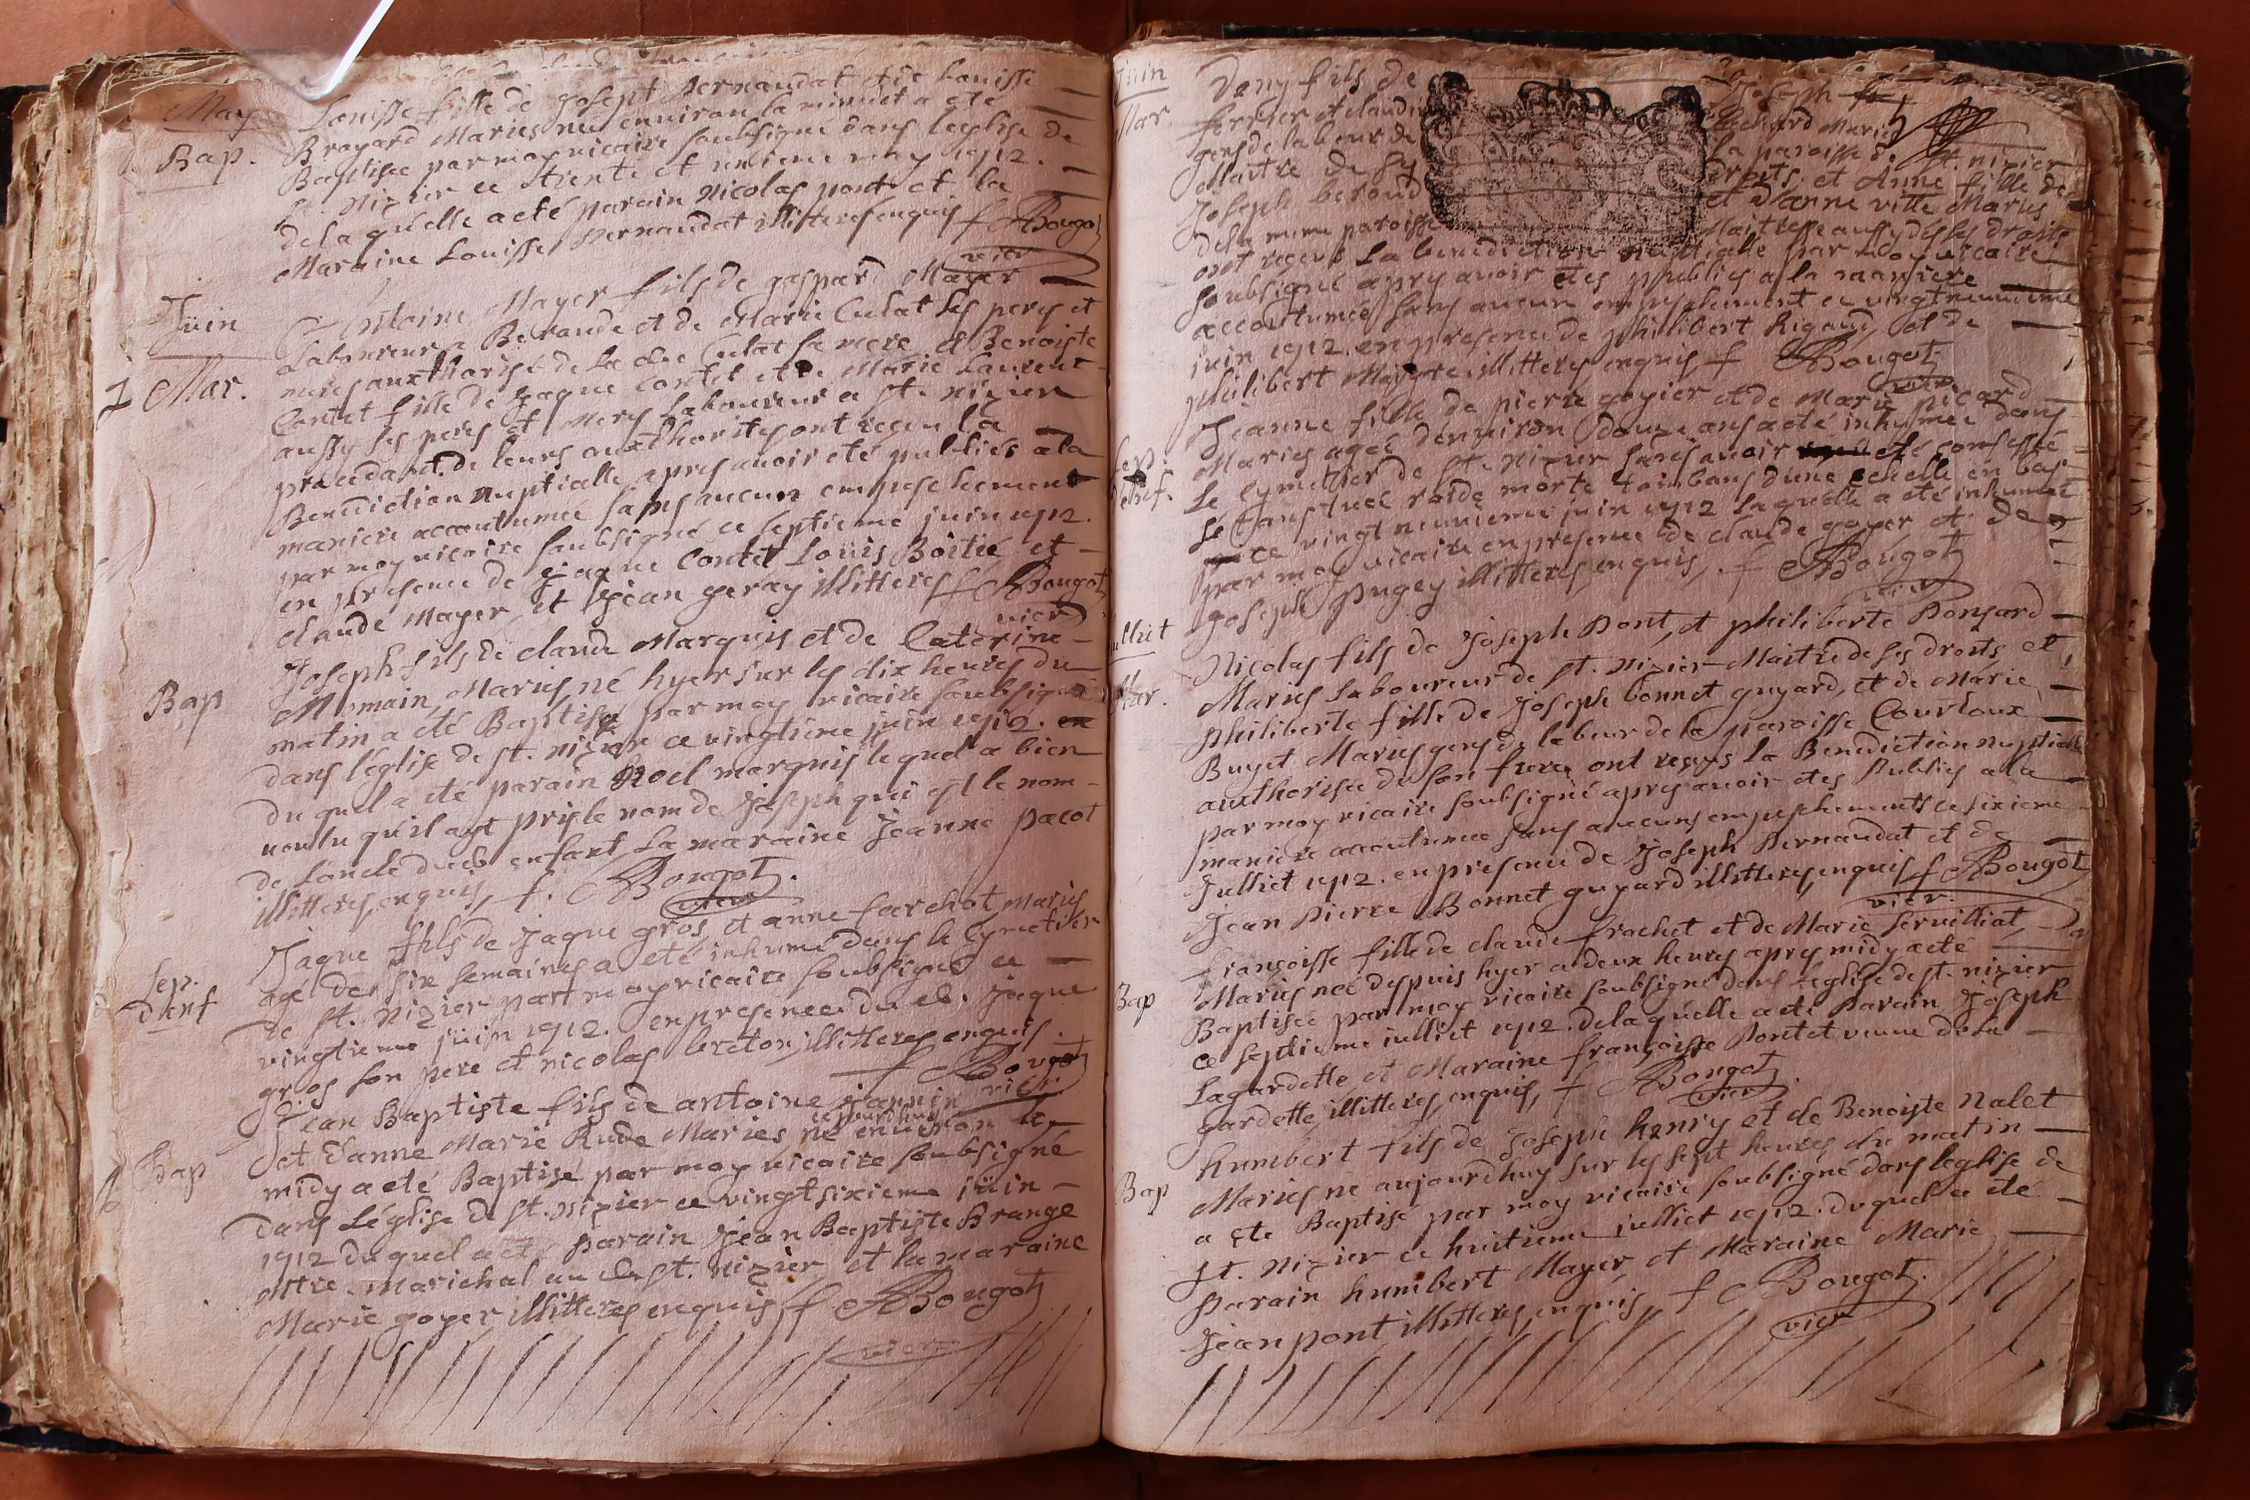 May
Louisse fille de Joseph Pernaudat et de Louisse
Brayard Maries née environ la minuit a eté
Bap.
Baptisee par moy vicaire soubsigné dans leglise de
St. Nizier ce trente et unieme may 1712.
dela quelle a eté parain Nicolas pont et la
Maraine Louisse Pernaudat illitteres enquis f Bougot
vier
Juin
Antoine Mayer fils de gaspard Mayer
Laboureur a Beraude et de Marie Culat ses peres et
Mar.
meres authorisé de la dte Culat sa mere et Benoiste
Contet fille de Jaque Contet et de Marie Laurent
aussy ses peres et Meres Laboureur a St. Nizier
procedant de leurs authorites ont reçeu la
Benediction nuptialle apres avoir eté publiés a la
maniere accoutumée sans aucun empeschement
par moy vicaire soubsigné ce septieme juin 1712.
en presence de Jaque Contet Louis Boitié et
claude Mayer, et Jean geray illitteres f Bougot
vier
Joseph fils de claude Marquis et de Caterine
Bap
Momain, Maries, né hyer sur les dix heures du
matin a eté Baptisé par moy vicaire soubsigné
dans l'église de st. nizier ce vingtieme juin 1712.
Du quel a eté parain Noel marquis le quel a bien
voulu qu'il ayt pris le nom de Joseph qui est le nom
de loncle dud enfant la maraine Jeanne pacot
illitteres, enquis, f. Bougot.
vier
Jaque fils de Jaque gros et anne farchot Maries
Sep.
d'enf
agé de six semaines a eté inhumé dans le Cymetier
de st. Nizier par moy vicaire soubsigné ce
vingtieme juin 1712. en presence du d. Jaque
gros son pere et nicolas breton illitteres enquis.
f Bougot
vier
Jean Baptiste fils de antoine Jannin
ce jourdhuy
et d'anne Marie Rude Maries né environ le
Bap
midy a eté Baptisé par moy vicaire soubsigné
dans L'église de st. Nizier ce vingtsixieme juin
1712 du quel a eté parain Jean Baptiste Brange
Mtre. Marichal au d. st. Nizier, et la maraine
Marie goyer illitteres enquis f Bougot
vier
Juin
Mar
Deny fils de
Joseph
ferrier et claudi
Richard Maries
gens de labeur de
la paroisse de St. nizier
Maitre de sy
droits et Anne fille de
Joseph beroud
et d'anne vitte Maries
dela meme paroisse
Maitresse aussy de ses droits
ont reçeu La benediction nuptialle par moy vicaire
soubsigné apres avoir etes publies a la maniere
accoutumée sans aucun empeschement ce vingtneuvieme
juin 1712. en presence de philibert Rigaud, et de
philibert Mayer illitteres enquis f Bougot
vier
Jeanne fille de pierre goyier et de Marie picard
Sep.
d'enf.
Maries agée d'environ douze ans a eté inhumée dans
Le Cymettier de St. Nizier sans avoir eté confessée
sé etans tuée roide morte tombans d'une echelle en bas
ce vingt neuvieme juin 1712 laquelle a eté inhumée
par moy vicaire en presence de claude goyer et de
Joseph pugey illitteres enquis, f Bougot
vier
Julliet
Nicolas fils de Joseph Pont, et philiberte Ponsard
Mar.
Maries Laboureur de st. nizier Maitre de ses droits et
philiberte fille de Joseph bonnet guyard, et de Marie
Buget Maries gens de labeur de la paroisse Courtoux
authorisée de son frere, ont reçeus la Benediction nuptialle
par moy vicaire soubsigné apres avoir etes Publies a la
maniere accoutumée sans aucuns empeschements ce sixieme
Julliet 1712. en presence de Joseph Pernaudat et de
Jean Pierre Bonnet guyard illitteres, enquis f Bougot
vier.
françoisse fille de claude frachet et de Marie Servilliat,
Bap
Maries née depuis hyer a deux heures apres midy a eté
Baptisée par moy vicaire soubsigné dans leglise de st. nizier
ce septieme julliet 1712. dela quelle a eté Parain Joseph
Lagardette et Maraine françoisse Pontet veuve de la
gardette illitteres, enquis, f Bougot.
vier
humbert fils de Joseph henry et de Benoiste Nalet
Bap
Maries né aujourdhuy sur les sept heures du matin
a ete Baptisé par moy vicaire soubsigné dans leglise de
st. Nizier ce huitieme julliet 1712. duquel a eté
parain humbert Mayer, et Maraine Marie
Jean pont illitteres, enquis, f Bougot.
vier